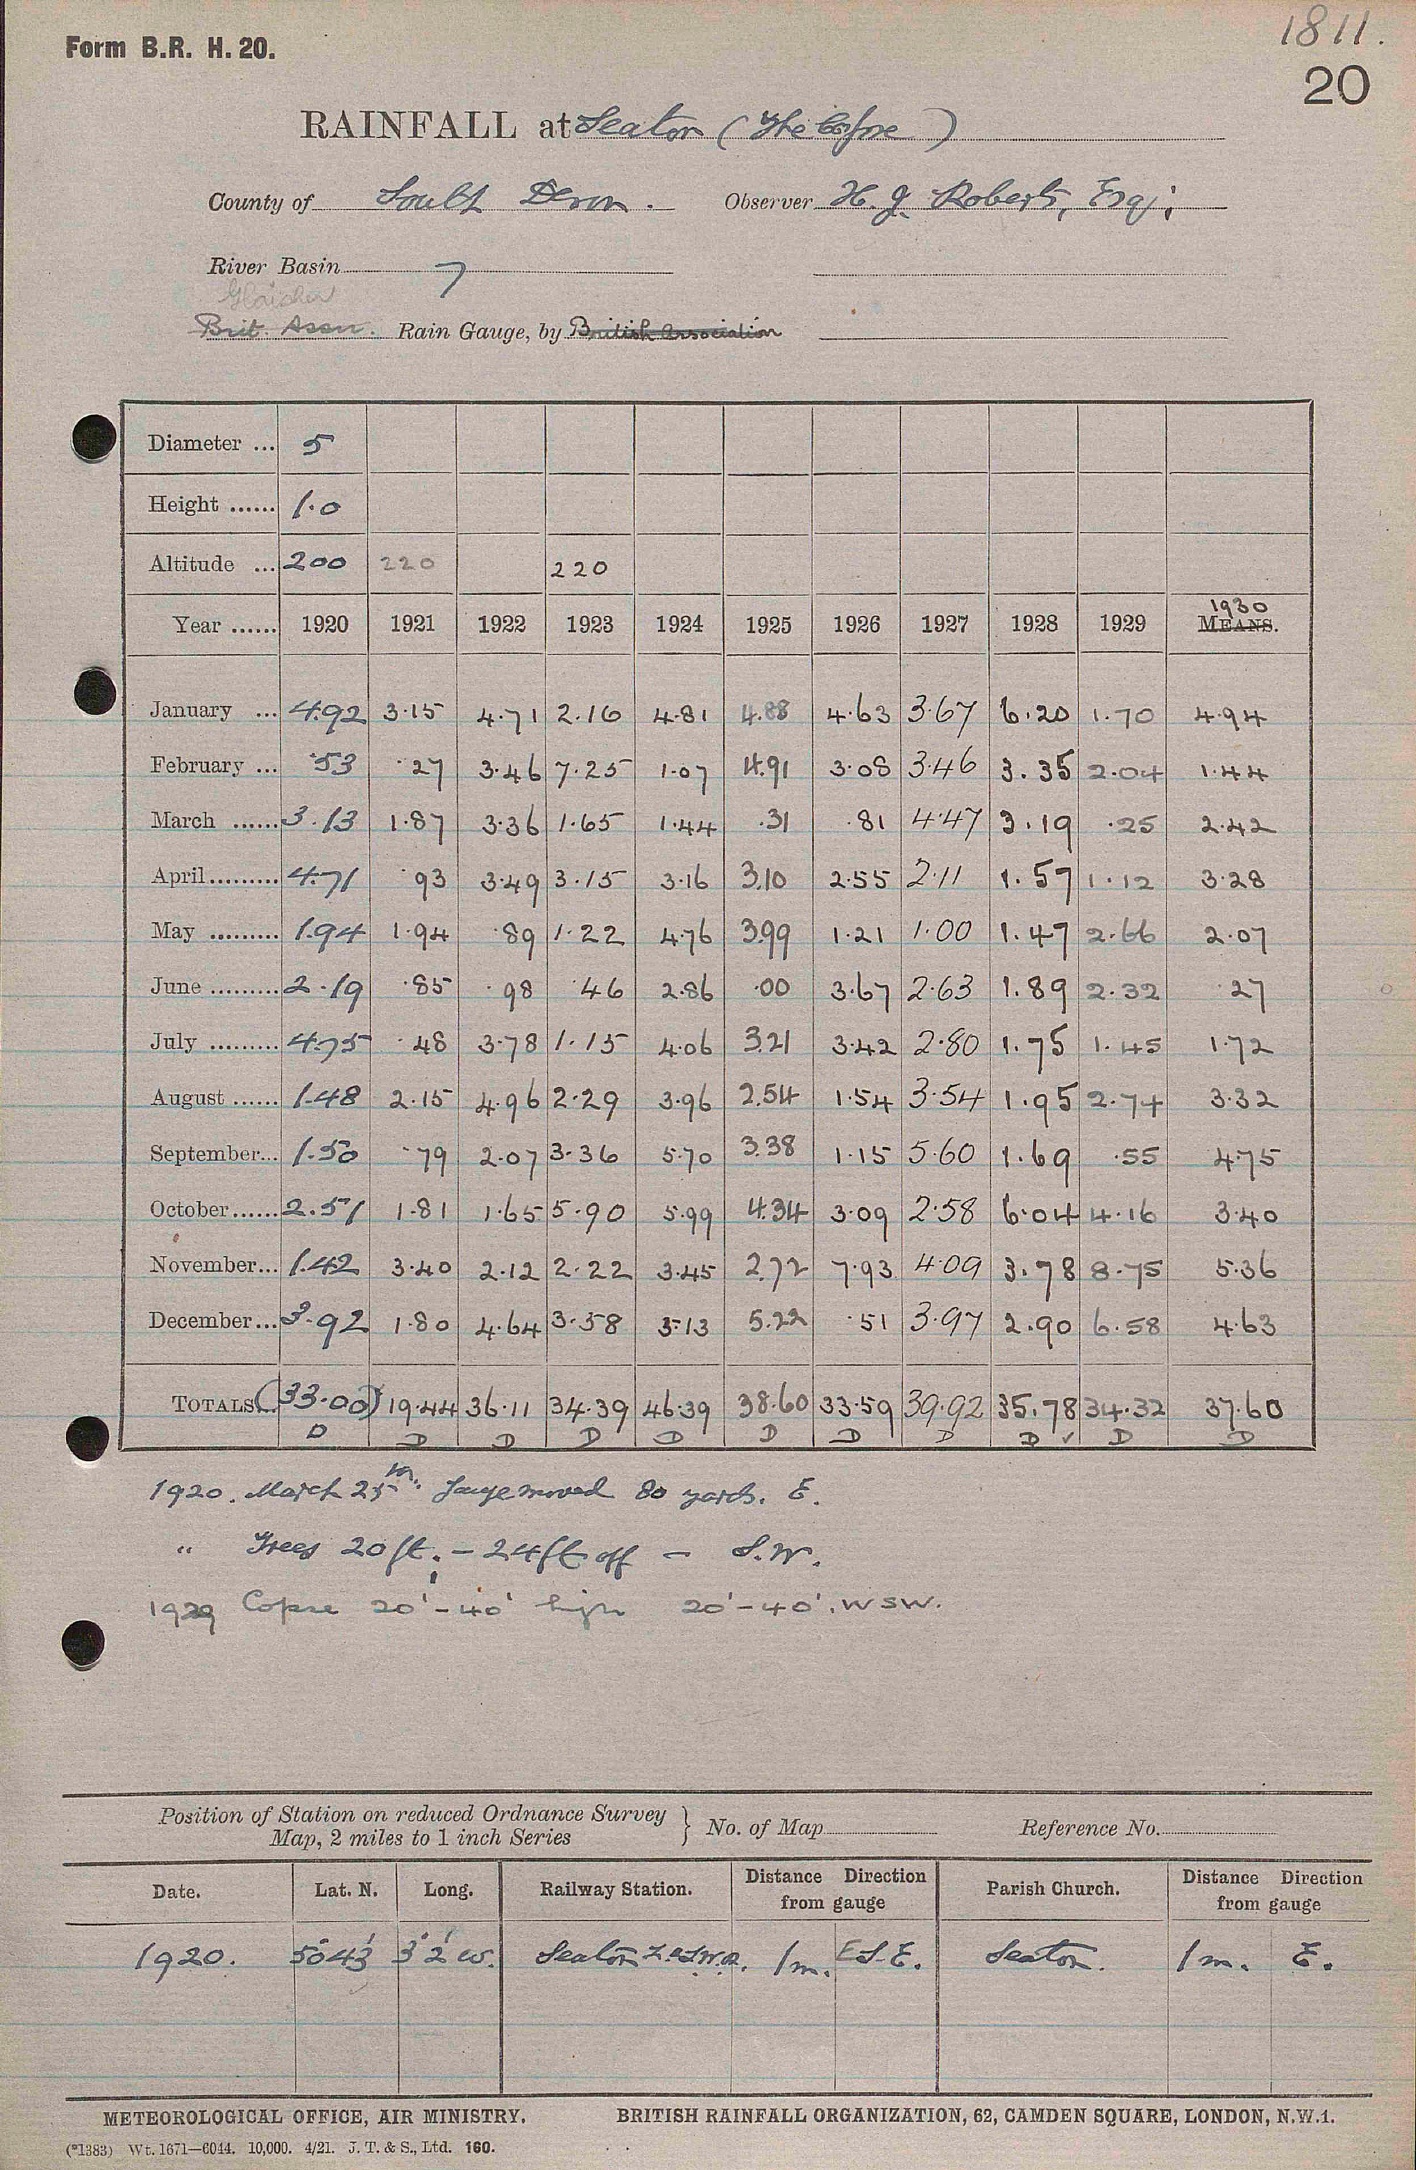 Form B.R. H. 20.
1811.
20
RAINFALL at Seaton (The Copse)
County of South Devon. Observer H. J. Roberts, Esq;
River Basin 7
Glaisher
Brit. Assn. Rain Gauge, by British Association
Diameter ... 5
Height ...... 1.0
Altitude ... 200 220 220
1930
Year ...... 1920 1921 1922 1923 1924 1925 1926 1927 1928 1929 MEANS.
January ... 4.92 3.15 4.71 2.16 4.81 4.88 4.63 3.67 6.20 1.70 4.94
February ... .53 .27 3.46 7.25 1.07 4.91 3.08 3.46 3.35 2.04 1.44
March ...... 3.13 1.87 3.36 1.65 1.44 .31 .81 4.47 3.19 .25 2.42
April......... 4.71 .93 3.49 3.15 3.16 3.10 2.55 2.11 1.57 1.12 3.28
May ......... 1.94 1.94 .89 1.22 4.76 3.99 1.21 1.00 1.47 2.66 2.07
June ......... 2.19 .85 .98 .46 2.86 .00 3.67 2.63 1.89 2.32 .27
July ......... 4.75 .48 3.78 1.15 4.06 3.21 3.42 2.80 1.75 1.45 1.72
August ...... 1.48 2.15 4.96 2.29 3.96 2.54 1.54 3.54 1.95 2.74 3.32
September... 1.50 .79 2.07 3.36 5.70 3.38 1.15 5.60 1.69 .55 4.75
October...... 2.51 1.81 1.65 5.90 5.99 4.34 3.09 2.58 6.04 4.16 3.40
November... 1.42 3.40 2.12 2.22 3.45 2.72 7.93 4.09 3.78 8.75 5.36
December... 3.92 1.80 4.64 3.58 5.13 5.22 .51 3.97 2.90 6.58 4.63
TOTALS... (33.00) 19.44 36.11 34.39 46.39 38.60 33.59 39.92 35.78 34.32 37.60
D D D D D D D D D ✓ D D
1920. March 25th. Gauge moved 80 yards. E.
" Trees 20 ft. - 24 ft off - S.W.
1929 Copse 20' - 40' high 20' - 40'. WSW.
Position of Station on reduced Ordnance Survey } No. of Map Reference No.
Map, 2 miles to 1 inch Series
Date. Lat. N. Long. Railway Station. Distance Direction from gauge Parish Church. Distance Direction from gauge
1920. 50°43' 3°2' W. Seaton L.&S.W.R. 1 m. ESE. Seaton. 1 m. E.
METEOROLOGICAL OFFICE, AIR MINISTRY. BRITISH RAINFALL ORGANIZATION, 62, CAMDEN SQUARE, LONDON, N.W.1.
(*1383) Wt. 1671—6044. 10,000. 4/21. J. T. & S., Ltd. 160.